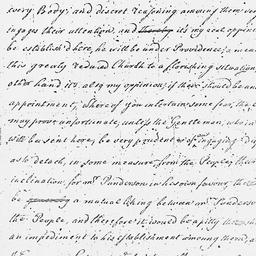 every Body; and discret reasoning among them
engages their attention, and thereby it's my real opini
be establish'd here, he will be under Providence, a mean
this greatly reduced Church to a flourishing situation
other hand it's also my opinion, if there should be an
appointment, where of you intertain some fear, the
may prove unfortunate, unless the Gentleman, who
will be sent here, be very prudent & of engaging
as to detach, in some measure from the People, their
inclination, for mr. Panderson in his
be a mutual liking between mr. Panderson
the People, and therefore it would be a pitty
an impediment to his establishment among them,